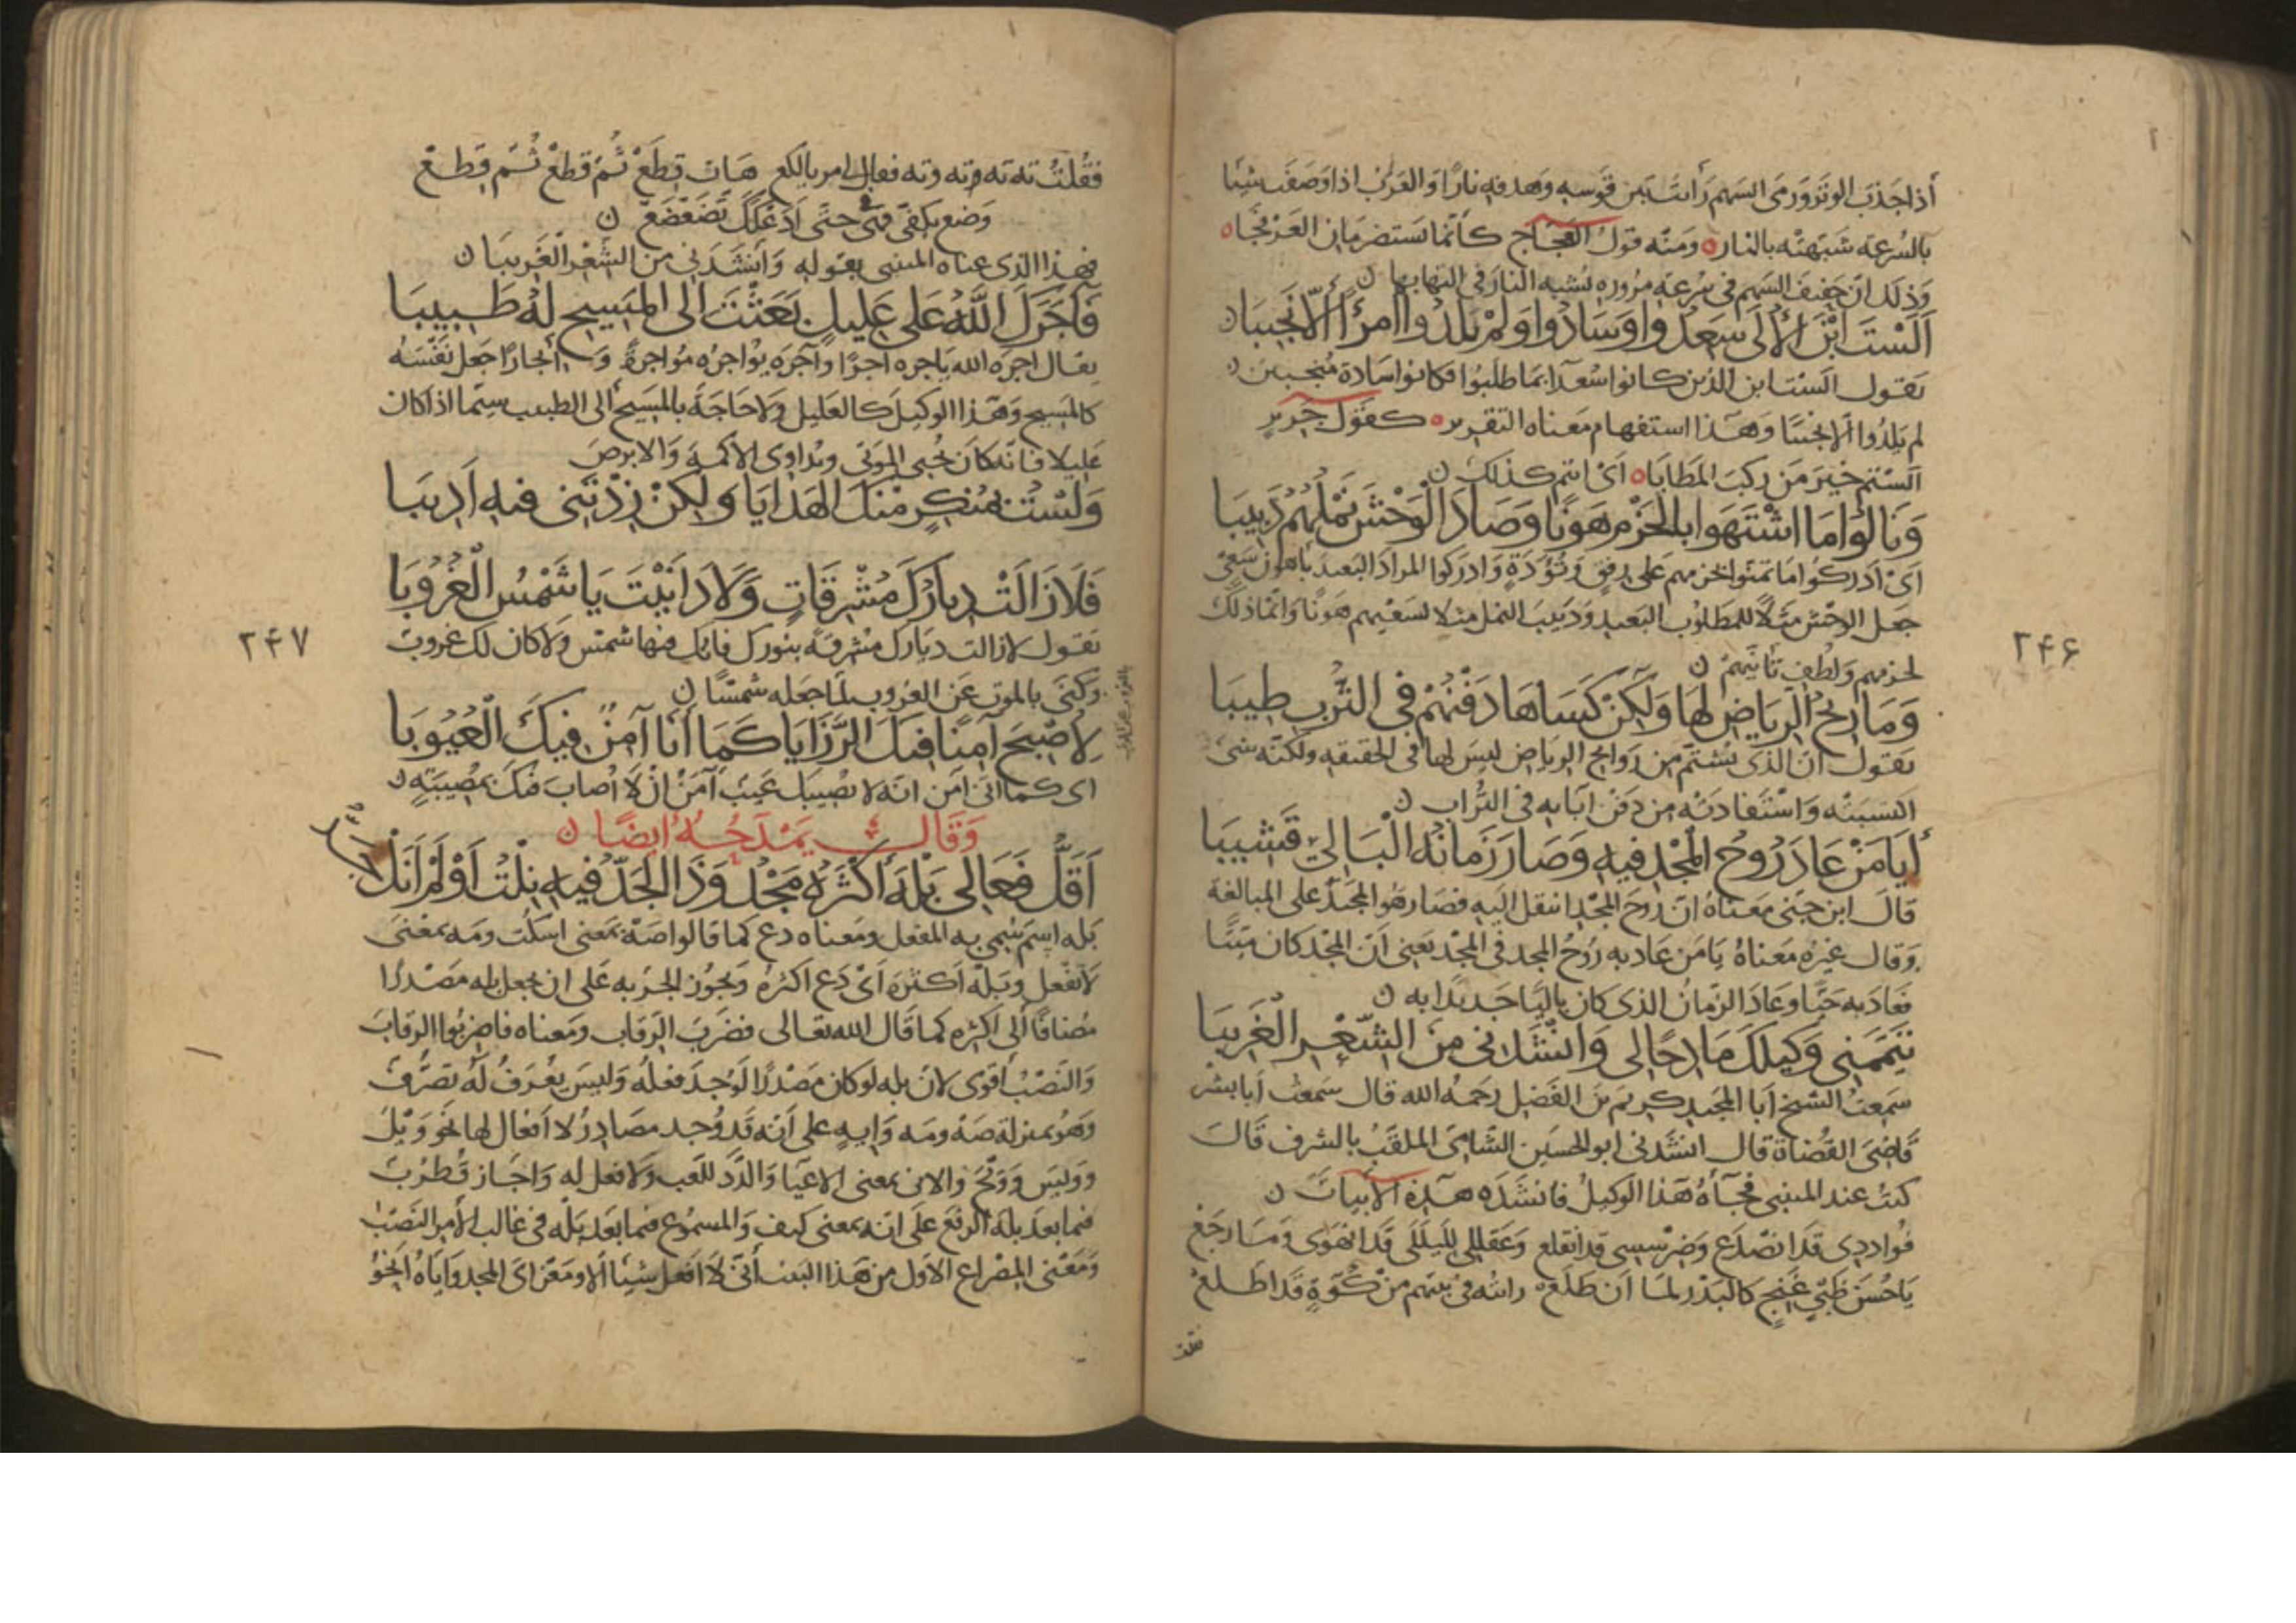 أذا جَذبَ الوتَرَ وَرَمَى السَهم رَأيتَ بَين قَوسِهِ وهَدَفهِ نارًا وَ العَرَبُ اذا وَصَفَت شيئا
بالسُرعة شَبّهتْه بالنار ومنه قولُ العجّاج كأنّما يَستضرمَان العَرفجَا
وَذلكَ انّ حفيف السَهم فى سُرعة مرُوره يُشبه النارَ فى التهابها
أَلَسْتَ ابْنَ الأُلَى سَعِدُوا وَسَادُوا وَلَمْ يَلِدُوا امرأً اَلّا نَجِيبَا
يَقول الَستَ ابن الذين كانوا سُعدآ بما طلبُوا فكانوا سَادة مُنجبين
لم يَلِدُوا اَلا نجيبًا وَهَذا استفهام مَعناه التقرير كقول جَرير
اَلستم خيرَ مَن ركبَ المَطايَا اَى انتم كذلك
وَنَالُوا مَا اشْتَهَوا بالحَزْمِ هَونًا وَصَادَ الْوَحْشَ نَمْلُهُمُ دَبِيبَا
اَىْ اَدركُوا مَا تمنوا بحَزمِهم على رفقٍ وَتُؤَدَةٍ وَادركوا المرادَ البَعيدَ بأهون سَعىٍ
جعل الوحْش مثَلًا للمَطلوُب البَعيد وَدَبيبَ النمل مثلا لسَعْيهم هَونًا وَانّما ذلكَ
لحزمهم وَلُطفِ تأنّيهمْ
وَمَا رِيحُ الرِيَاضِ لَهَا وَلٰكِنْ كَسَاهَا دَفْنُهُمْ فى التُرْبِ طِيبَا
يَقول انّ الذى يُشتمّ مِن رَوايح الرياض ليسَ لها فى الحقيقه ولكنّه شئ
اكتسبَتْه وَاسْتَفادَتْه من دَفن آبائه فى التُّراب
أَيَا مَنْ عَادَ رُوحُ الْمَجْدِ فِيهِ وَصَارَ زَمَانُهُ الْبَالِيْ قَشِيبَا
قالَ ابن جنى مَعناهُ انّ رُوحَ المَجْدِ انتقل اليهِ فصَار هُو المجَدَ على المبالغة
وَقال غيرُه مَعناهُ يَا مَن عَاد به رُوحُ المجد فى المجْد يَعنى اَنّ المجْد كان مَيّتًا
فعَادَ به حَيًّا وعَادَ الزَمانُ الذى كان بالِيًا جَديدًا به
تَيَمَّمَنِى وَكِيلُكَ مَادِحًا لِى وَاَنْشَدَنى مِنَ الشِّعْرِ الْغَرِيبَا
سَمعتُ الشيخَ اَبا المجَيدِ كريم بنَ الفَضْل رحمَهُ الله قال سَمعتُ اَبا بشْر
قَاضِىَ القضَاة قال انشدَنى ابو الحسَين الشامىَ الملقّبُ بالمشرف قَالَ
كنتُ عند المتنبى فجآءَهُ هَذا الوكيلُ فانشَدَه هَذِه الاَبياتَ
فُوادى قَد انصَدَع وَضرْسِى قد انقلع وَعَقلى لِليلَى قَد انهَوى وَمَا رجَعْ
يَا حُسنَ ظَبْىٍ غَنِجٍ كالبَدْر لمّا اَن طَلَعْ رايتُه فى بيتهم منْ كُوّةٍ قَد اطلعْ
فقلت
۲۴۶
فقُلتُ ته ته وته وته فقال لى مر يا لكع هَات قِطَعْ ثُمّ قِطَعْ ثُمّ قِطَعْ
وَضع بكفّى حتَّى
فهذا الذى عناه المتنبى بقوله وَاَنشدَنى من الشِّعْرِ الْغَرِيبَا
فَآجَرَكَ اللَّهُ عَلَى عَلِيلٍ بَعَثْتَ اِلَى الْمَسِيحِ لَهُ طَبِيبَا
يقال اجرَه الله يَاجره اَجرًا وآجَره يُواجرُه مُواجرةً جعل نَفْسَهُ
كالمَسِيح وَهَذا الوكيل كالعَليل وَلا حَاجَةَ بالمسَيح اَلى الطبيب سيّما اذا كان
عَليلا فانّه كانَ يُحيى الموَتى ويُداوى الاكمهَ وَالابرصَ
وَلَسْتُ بمُنْكِرٍ مِنْكَ الهَدَايَا وَلٰكِنْ زِدْتَنِى فيهِ اَدِيبَا
فَلَا زَالَتْ دِيَارُكَ مُشْرِقَاتٍ وَلَا دَانَيْتَ يَا شَمْسُ الْغُرُوبَا
يقول لازالت ديَارك مُشْرقَةً بنورك فانّك فيها شمسٌ وَلا كان لك غروب
وَكَنَى بالموت عَن الغروب لمّا جعله شمسًا
لِأُصْبِحَ آمِنًا فِيكَ الرَّزَايَا كَمَا اَنَا آمِنٌ فِيكَ الْعُيُوبَا
اى كما اَنى آمن انه لا يُصِيبكَ عَيبٌ آمَنُ اَنْ لا اُصابَ فيكَ بمُصِيبَةٍ
وَقَالَ يَمْدَحُهُ اَيضًا
اَقَلُّ فَعَالِى بَلْهَ اَكْثَرَهُ مَجْدُ وَذَا الجَدُّ فِيهِ نِلْتُ اَوْ لَمْ اَنَلْ جَدُّ
بَله اسم سُمى به الفعل ومَعناه دع كما قالوا صَهْ بمَعنى اسكُت ومَه بمعْنى
لا تَفعل وبَلهَ اَكثرَه اَىْ دَع اَكثرَهُ وَيجوُز الجرّ به عَلى ان يجعل بله مَصْدرًا
مُضافًا اِلَى اكثره كما قَال الله تعَالى فضَربَ الرقَاب ومَعناه فاضربُوا الرقابَ
وَالنَصْبُ أقوى لانّ بله لوكان مَصْدرًا لَوُجدَ فعلهُ وَليسَ يعُرَفُ لَه تصَرُّفٌ
وَهوُ بمنزلة صَهْ ومَه وَايهٍ على أنه قد وُجد مصَادِرُ لا اَفعَال لها نحو وَيْل
وَوَيْسَ وَوَيحَ والاين بمعنى الاعيَا وَالدَّد للّعب وَلا فعل لِه وَاجَاز قُطرُبٌ
فيما بعدَ بلهَ الرفعَ عَلى انه بمعنى كيف وَالمسموُع فيما بَعَد بَلْه فى غالب الأمر النَصْبُ
وَمَعْنى المِصْراع الاَول من هَذا البيت أنّى لا اَفعل شيئا اَلا ومَغزَاىَ المجد وَايّاهُ اَنْحُو
۲۴۷